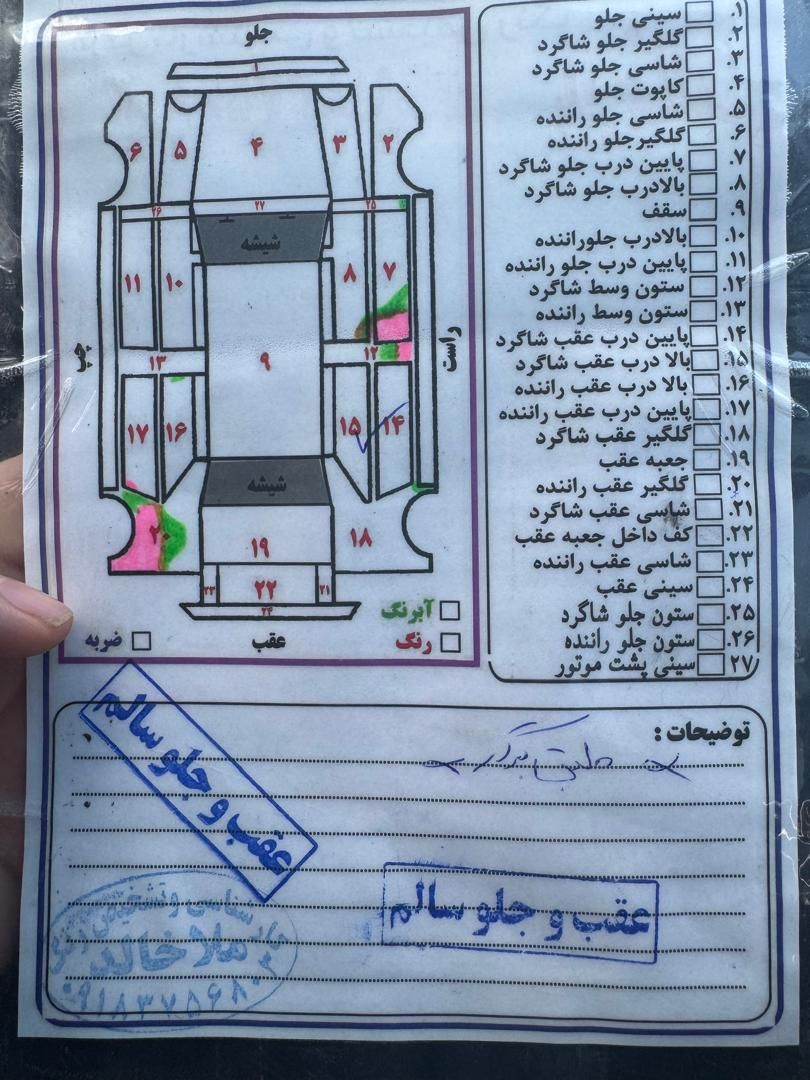 جلو
۱
۶
۵
۴
۳
۲
۲۶
۲۷
۲۵
شیشه
۱۱
۱۰
۸
۷
چپ
راست
۱۳
۹
۱۲
۱۷
۱۶
۱۵
۱۴
شیشه
۲۰
۱۹
۱۸
۲۳
۲۲
۲۱
۲۴
آبرنگ
ضربه
عقب
رنگ
۱. سینی جلو
۲. گلگیر جلو شاگرد
۳. شاسی جلو شاگرد
۴. کاپوت جلو
۵. شاسی جلو راننده
۶. گلگیرجلو راننده
۷. پایین درب جلو شاگرد
۸. بالادرب جلو شاگرد
۹. سقف
۱۰. بالادرب جلوراننده
۱۱. پایین درب جلو راننده
۱۲. ستون وسط شاگرد
۱۳. ستون وسط راننده
۱۴. پایین درب عقب شاگرد
۱۵. بالا درب عقب شاگرد
۱۶. بالا درب عقب راننده
۱۷. پایین درب عقب راننده
۱۸. گلگیر عقب شاگرد
۱۹. جعبه عقب
۲۰. گلگیر عقب راننده
۲۱. شاسی عقب شاگرد
۲۲. کف داخل جعبه عقب
۲۳. شاسی عقب راننده
۲۴. سینی عقب
۲۵. ستون جلو شاگرد
۲۶. ستون جلو راننده
۲۷. سینی پشت موتور
توضیحات :
عقب و جلو سالم
عقب و جلو سالم
ملا خالد